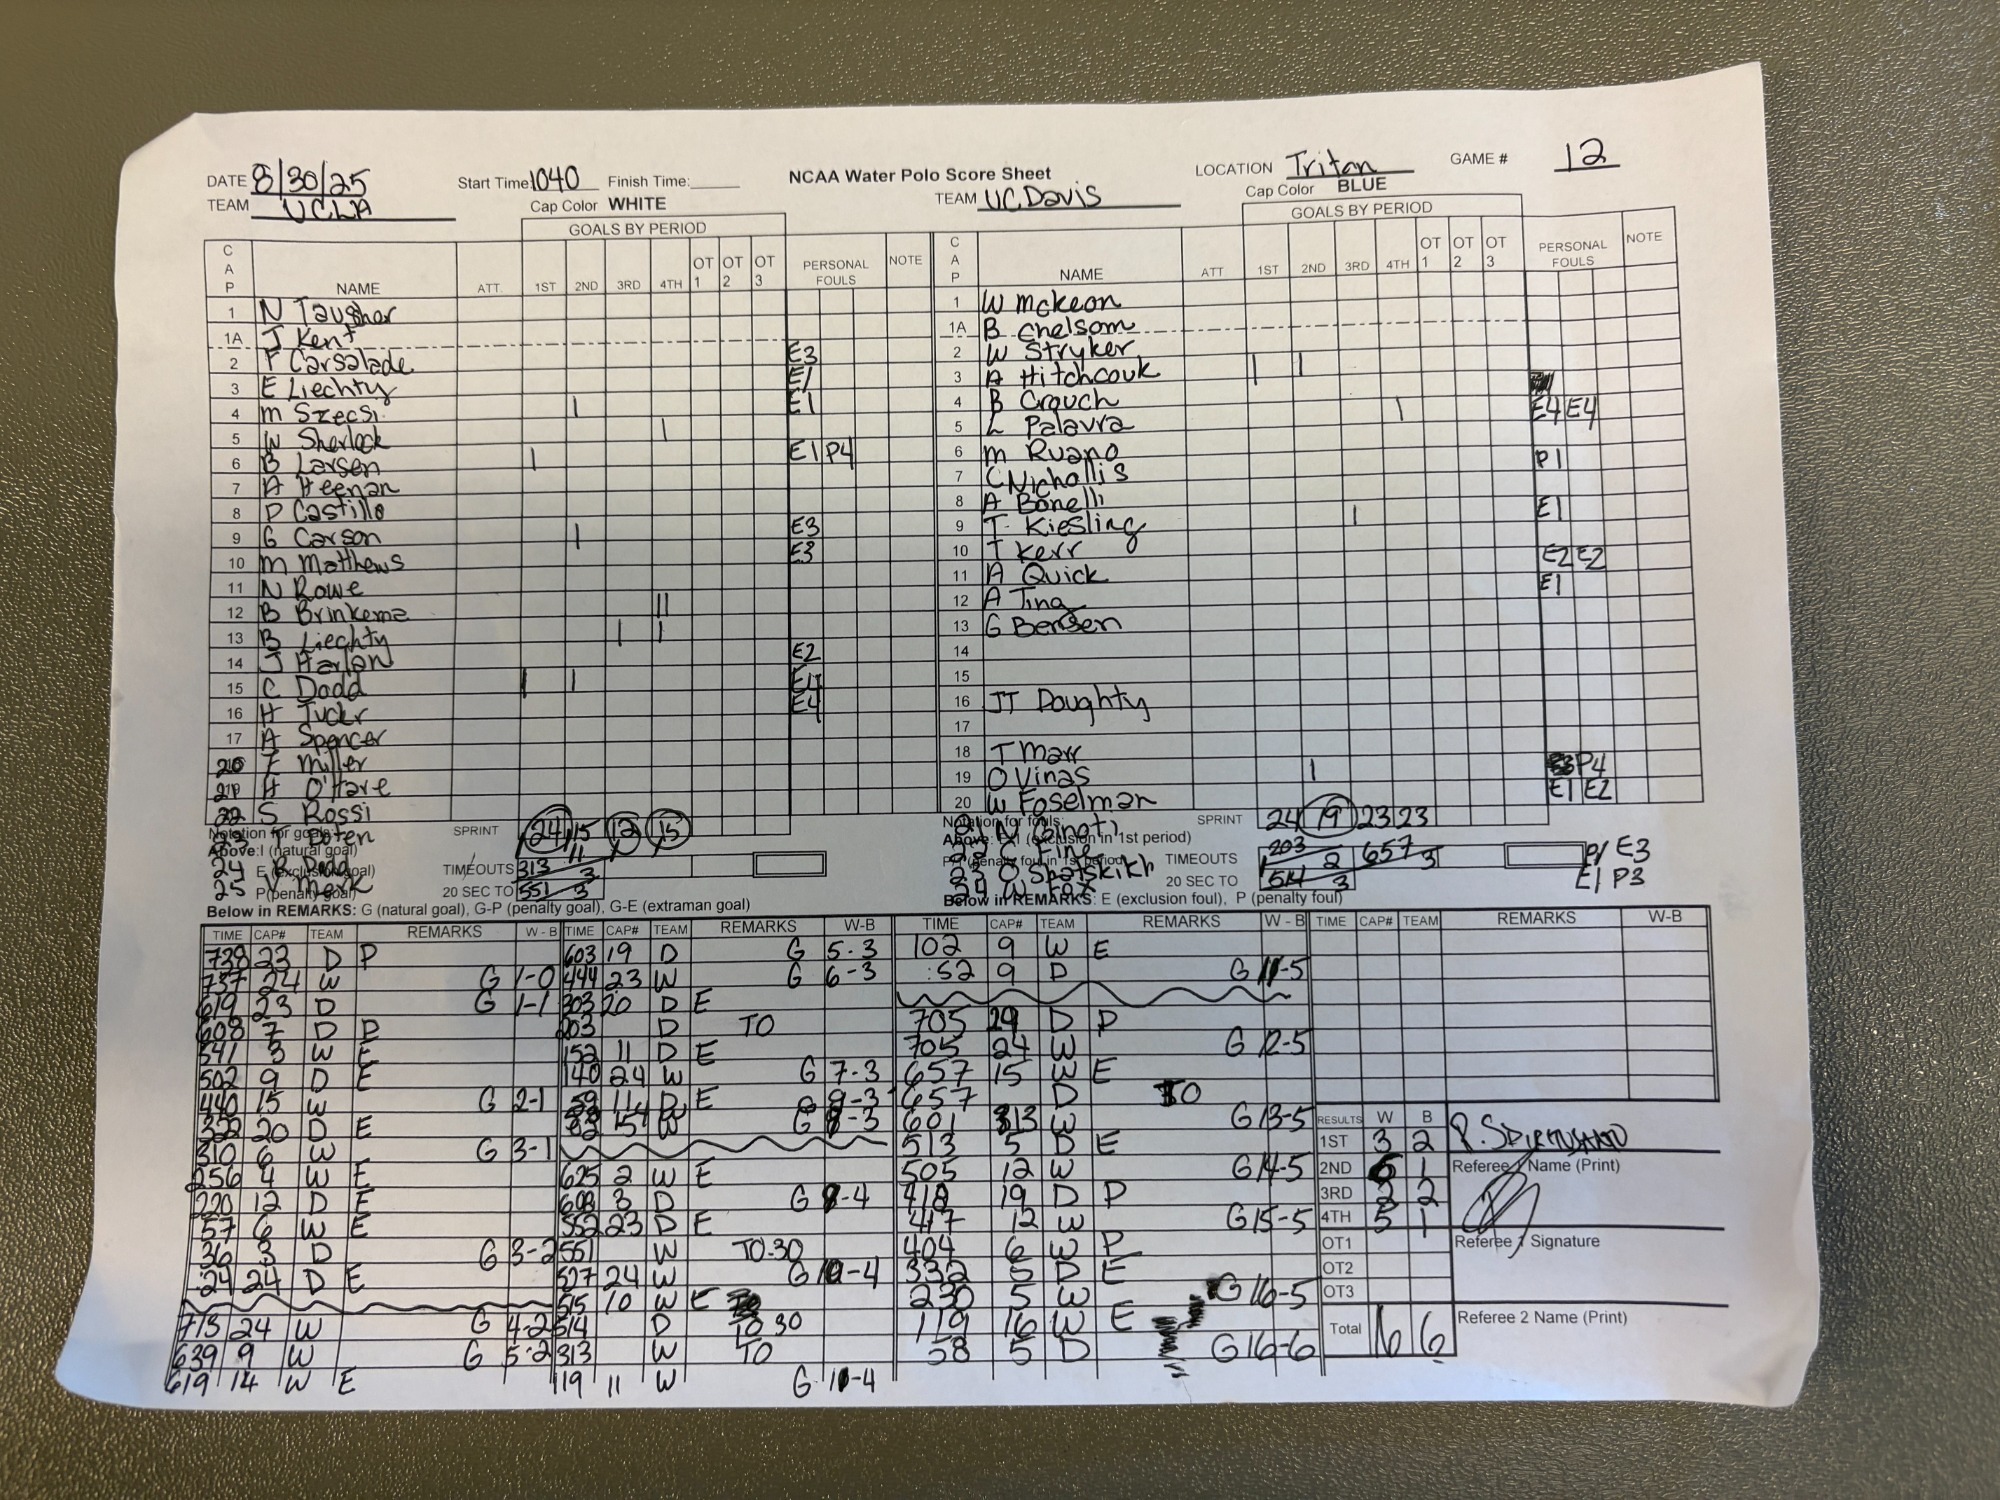 DATE 8/30/25 Start Time: 1040 Finish Time: NCAA Water Polo Score Sheet LOCATION Triton GAME # 12
TEAM UCLA Cap Color WHITE TEAM UC Davis Cap Color BLUE
GOALS BY PERIOD GOALS BY PERIOD
CAP NAME ATT. 1ST 2ND 3RD 4TH OT 1 OT 2 OT 3 PERSONAL FOULS NOTE CAP NAME ATT 1ST 2ND 3RD 4TH OT 1 OT 2 OT 3 PERSONAL FOULS NOTE
1 N Tausher 1 W Mckeon
1A J Kent 1A B Chelsom
2 F Carsalade E3 2 W Stryker
3 E Liechty E1 3 A Hitchcouk | |
4 M Szecsi | E1 4 B Crouch
5 W Sherlock | 5 L Palavra | E4 E4
6 B Larsen | E1 P4 6 M Ruano
7 A Heenan 7 C Nichollis P1
8 P Castillo 8 A Bonelli
9 G Carson | E3 9 T Kiesling | E1
10 M Matthews E3 10 T Kerr
11 N Rowe 11 A Quick E2 E2
12 B Brinkema || 12 A Ting E1
13 B Liechty | | 13 G Bensen
14 J Harlan E2 14
15 C Dodd | | E4 15
16 H Tuckr E4 16 JT Doughty
17 A Spencer 17
20 E Miller 18 T Marr
21 H O'Hare 19 O Vinas | P4
22 S Rossi 20 W Foselman E1 E2
Notation for goals: SPRINT 24 15 12 15 Notation for fouls: SPRINT 24 19 23 23
Above: I (natural goal) Above: (exclusion in 1st period)
24 R Dodd TIMEOUTS 313 3 22 C Fine TIMEOUTS 203 2 657 3 P1 E3
25 V Merk P(penalty goal) 20 SEC TO 551 3 24 W Fox 20 SEC TO 514 3 E1 P3
Below in REMARKS: G (natural goal), G-P (penalty goal), G-E (extraman goal) Below in REMARKS: E (exclusion foul), P (penalty foul)
TIME CAP# TEAM REMARKS W - B TIME CAP# TEAM REMARKS W-B TIME CAP# TEAM REMARKS W - B TIME CAP# TEAM REMARKS W-B
738 23 D P 603 19 D G 5-3 102 9 W E
737 24 W G 1-0 444 23 W G 6-3 :52 9 D G 11-5
619 23 D G 1-1 303 20 D E
608 7 D P 203 D TO 705 D P
541 3 W E 152 11 D E 705 24 W G 12-5
502 9 D E 140 24 W G 7-3 657 15 W E
440 15 W G 2-1 59 11 D E 657 D TO
322 20 D E 601 13 W G 13-5
310 6 W G 3-1 513 5 D E
256 4 W E 625 2 W E 505 12 W G 14-5
220 12 D E 608 3 D G -4 418 19 D P
57 6 W E 552 23 D E 417 12 W G 15-5
36 3 D G 3-2 551 W TO-30 404 6 W P
24 24 D E 527 24 W G 10-4 332 5 D E
515 10 W E 230 5 W G 16-5
713 24 W G 4-2 514 D TO 30 119 16 W E
639 9 W G 5-2 313 W TO 58 5 D G 16-6
619 14 W E 119 11 W G 11-4
RESULTS W B
1ST 3 2
2ND 1 Referee 1 Name (Print)
3RD 2
4TH 5 1
OT1 Referee 1 Signature
OT2
OT3
Total 16 6 Referee 2 Name (Print)